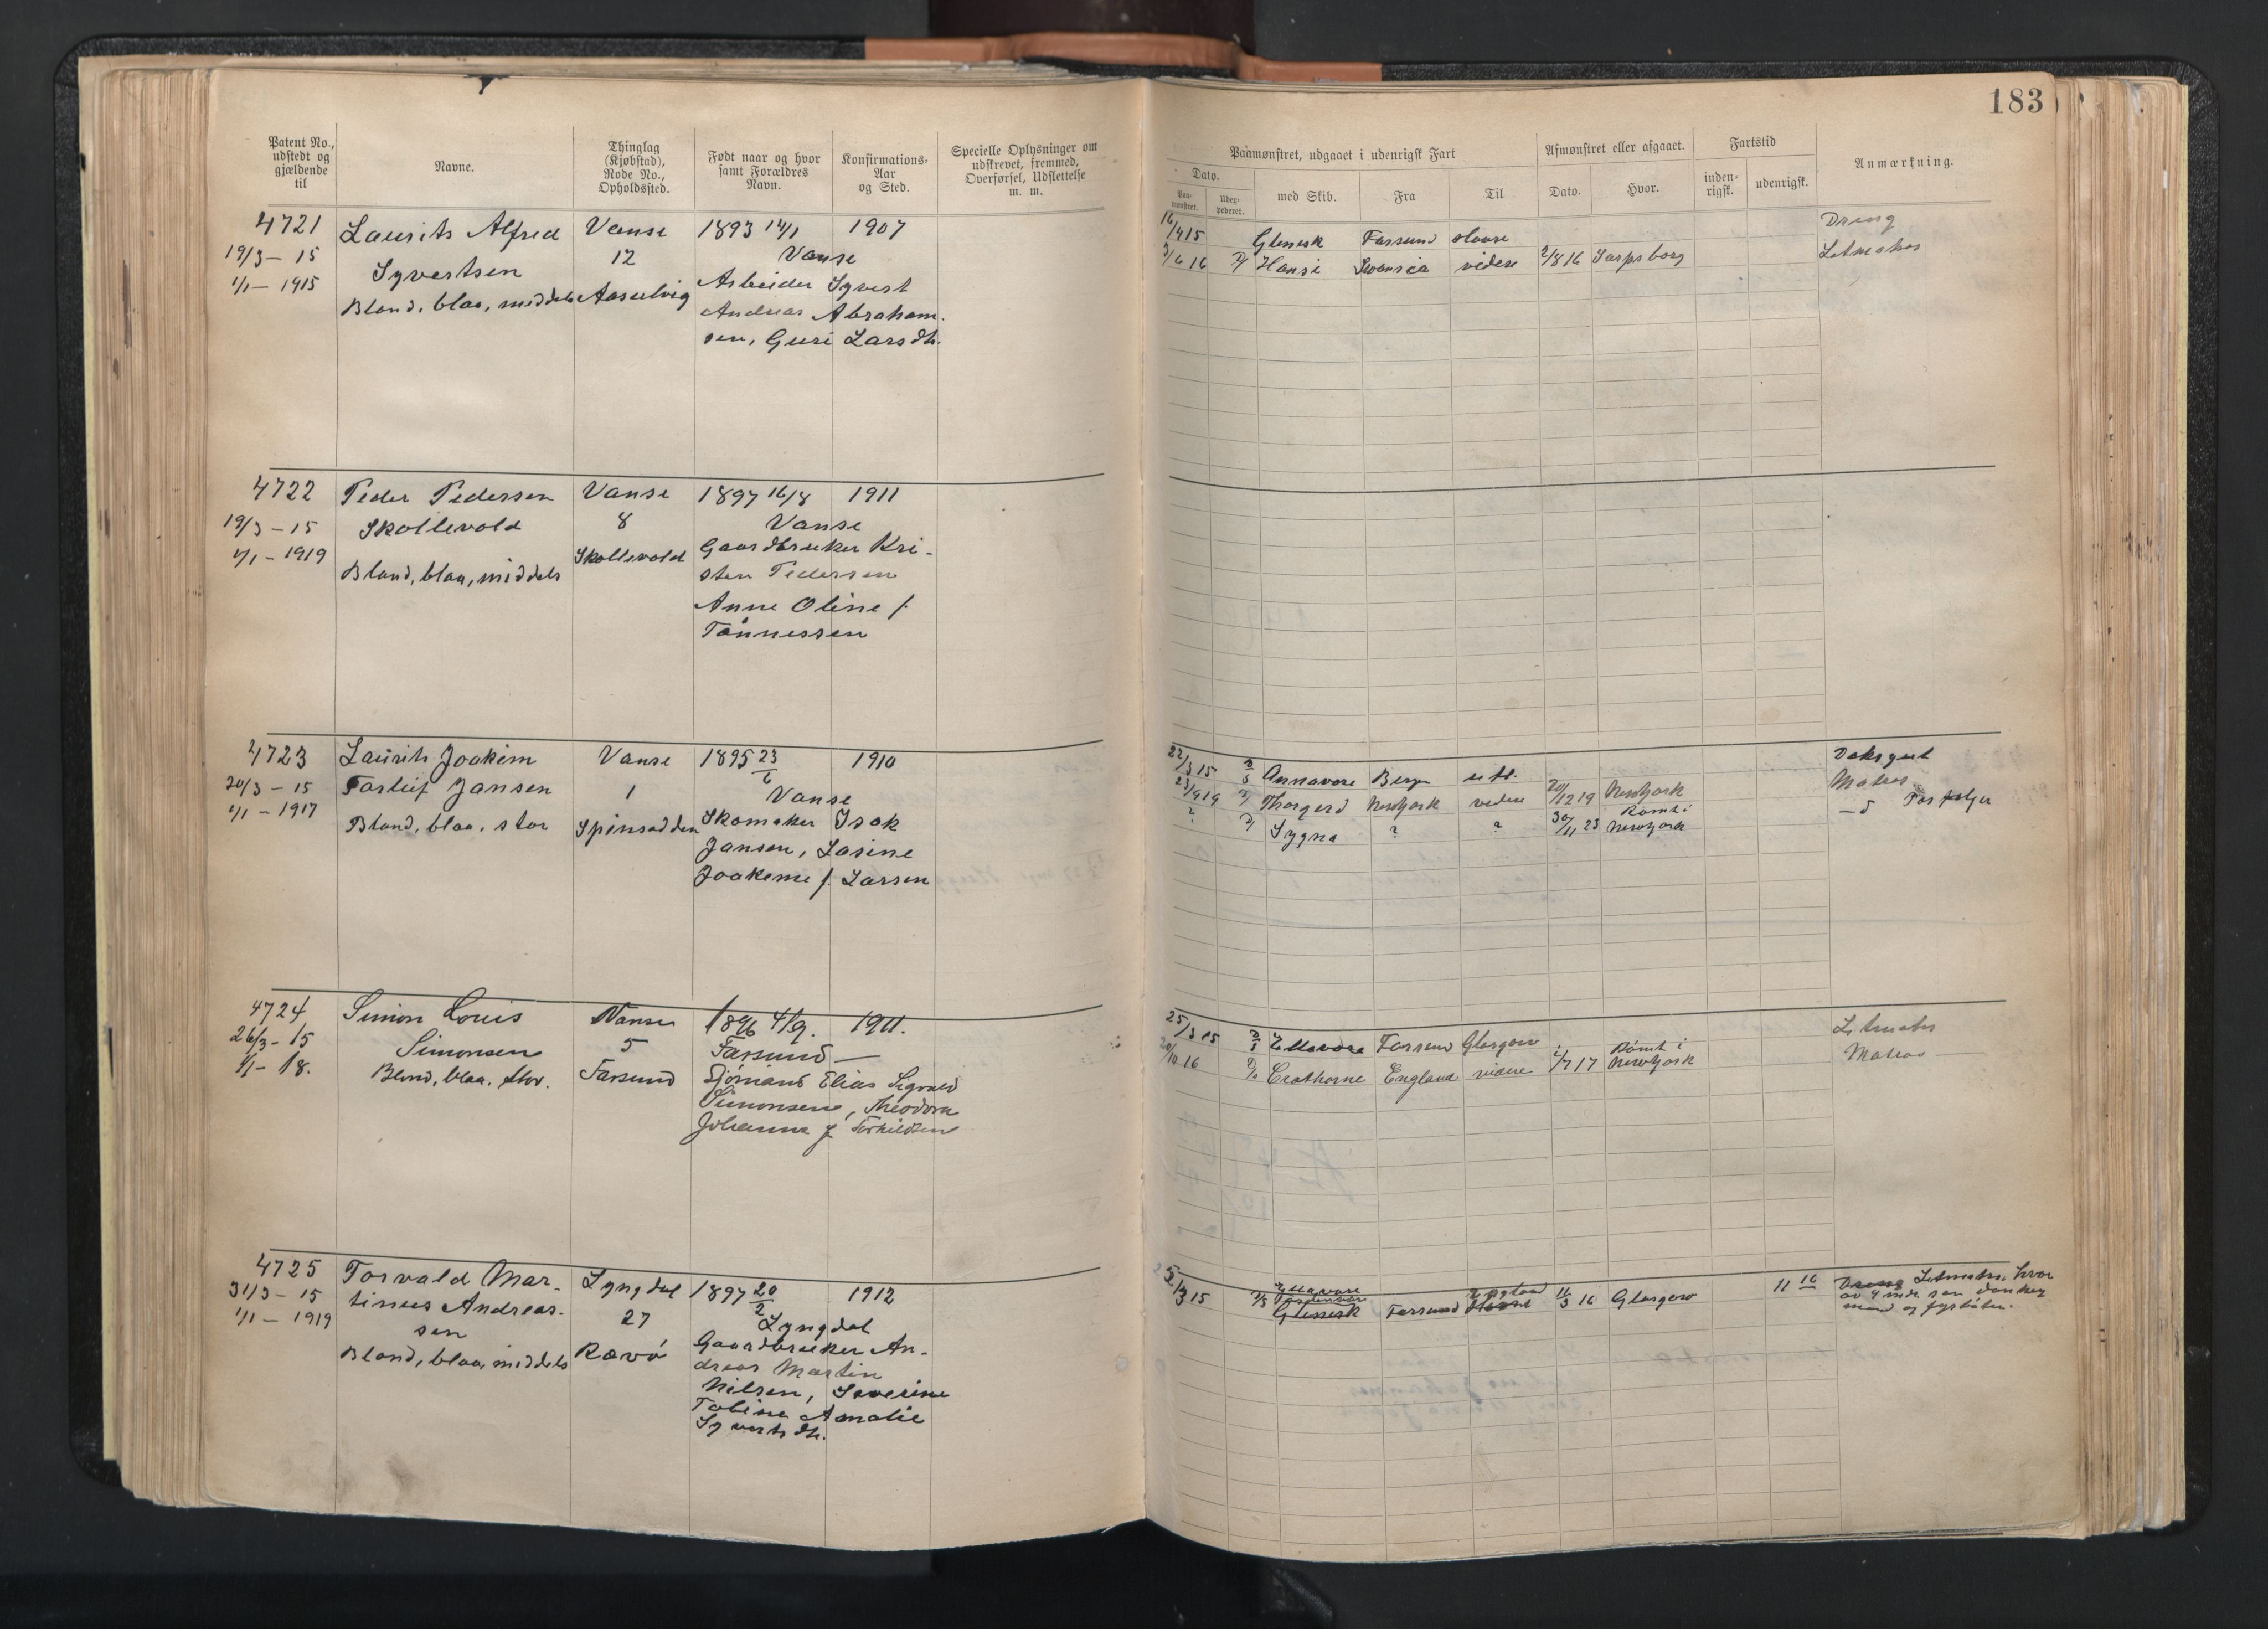 183
Patent No., udstedt og gjældende til
Navne.
Thinglag (Kjøbstad), Rode No., Opholdssted.
Født naar og hvor samt Forældres Navn.
Konfirmations-Aar og Sted.
Specielle Oplysninger om udskrevet, fremmed, Overførsel, Udslettelse m. m.
Paamønstret, udgaaet i udenrigsk Fart
Dato.
Paa-mønstret.
Udex-pederet.
med Skib.
Fra
Til
Afmønstret eller afgaaet.
Dato.
Hvor.
Fartstid
inden-rigsk.
udenrigsk.
Anmærkning.
4721 Laurits Alfred Vanse 1893 14/1 1907
19/3 - 15 Syvertsen 12 Vanse
1/1 - 1915 Blond, blaa, middels Aaselvig Arbeider Syvert
Andreas Abraham-
sen, Guri Larsdt.
16/4 15 Glenesk Farsund Dreng
2/6 16 Hansi Swansea videre 2/8 16 Sarpsborg Letmatros
4722 Peder Pedersen Vanse 1897 16/8 1911
19/3 - 15 Skollevold 8 Vanse
1/1 - 1919 Skollevold Gaardbruker Kri-
Blond, blaa, middels sten Pedersen
Anne Oline f.
Tønnessen
4723 Laurits Joakim Vanse 1895 23/6 1910
20/3 - 15 Tarleif Jansen 1 Vanse
1/1 - 1917 Blond, blaa, stor Spinsodden Skomaker Isak
Jansen, Lasine
Joakime f. Larsen
22/3 15 Annavore Bergen utl. Dæksgut
23/9 19 Thorgerd Newyork videre 20/12 19 Newyork Matros
? Sygna ? ? 30/11 23 Rømt i Newyork
4724 Simon Louis Vanse 1896 4/9. 1911.
26/3 - 15 Simonsen 5 Farsund —
1/1 - 18. Blond, blaa. stor. Farsund Sjømand Elias Sigvald
Simonsen, Theodora
Johanne f. Torkildsen
25/3 15 Ellavore Farsund Glasgow Letmatros
20/10 16 Crathorne England videre 1/7 17 Rømt i Newyork Matros
4725 Torvald Mar- Lyngdal 1897 20/2 1912
31/3 - 15 tinus Andreas- 27 Lyngdal
1/1 - 1919 sen Rævø Gaardbruker An-
Blond, blaa, middels dreas Martin
Nilsen, Severine
Tobine Amalie
Syvertsdt.
5/3 15 Ellavore Glenesk Farsund England 16/3 16 Glasgow 11 16 Dreng Letmatros, hvor
av 4 mdr som donkey
mand og fyrbøter.